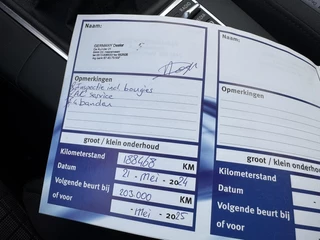 Naam:
Opmerkingen
Inspectie incl. bougies
AC service
4 banden
groot / klein onderhoud
Kilometerstand 188468 KM
Datum 21 - Mei - 2024
Volgende beurt bij 203.000 KM
of voor - Mei - 2025
Naam:
Opmerkingen
groot / kl
Kilometerstand
Datum
Volgende beurt
of voor